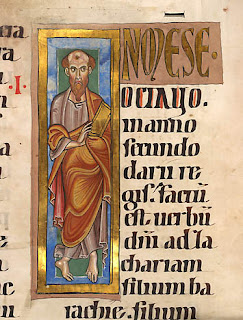 N MESE
OCTAVO.
in anno
secundo
darii re
gis. factū
est uerbū
dn̄i ad za
chariam
filium ba
rachie. filium